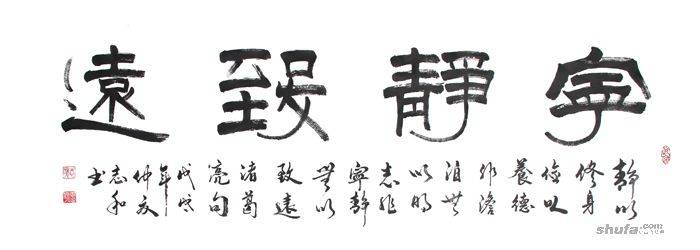 寧靜致遠
靜以
修身
儉以
養德
非澹
泊無
以明
志非
寧靜
無以
致遠
诸葛
亮句
戊戌
年
仲夏
志和
书
shufa.com